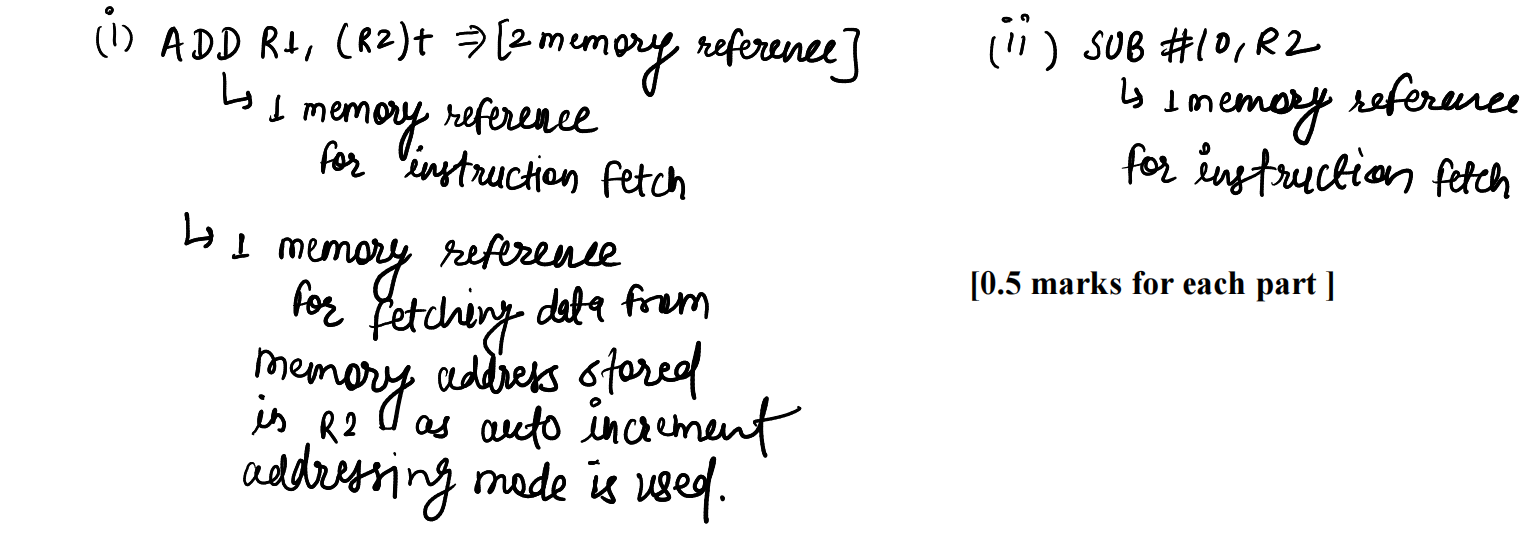 (i) ADD R1, (R2)+ ⇒ [2 memory reference]
↳ 1 memory reference
for instruction fetch
↳ 1 memory reference
for fetching data from
memory address stored
is R2 as auto increment
addressing mode is used.
(ii) SUB #10, R2
↳ 1 memory reference
for instruction fetch
[0.5 marks for each part ]